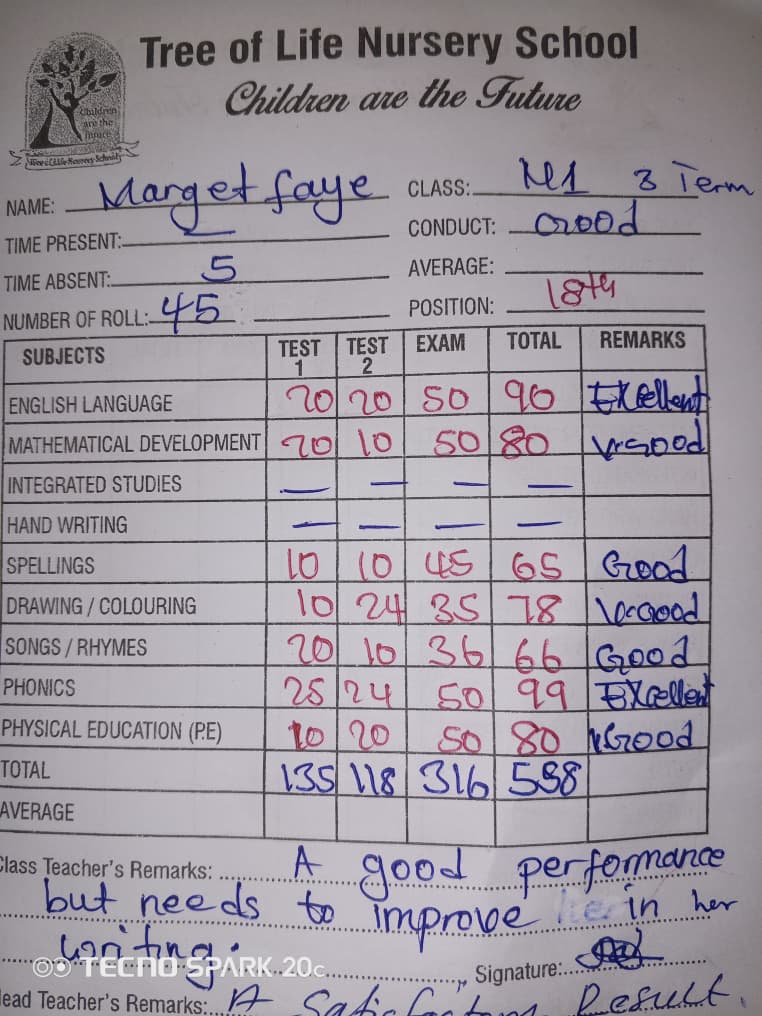 Tree of Life Nursery School
Children are the Future
Children are the future
Tree of Life Nursery School
NAME: Marget faye CLASS: N1 3 Term
TIME PRESENT: — CONDUCT: Good
TIME ABSENT: 5 AVERAGE:
NUMBER OF ROLL: 45 POSITION: 18th
SUBJECTS TEST 1 TEST 2 EXAM TOTAL REMARKS
ENGLISH LANGUAGE 20 20 50 90 Excellent
MATHEMATICAL DEVELOPMENT 20 10 50 80 V.Good
INTEGRATED STUDIES — — — —
HAND WRITING — — — —
SPELLINGS 10 10 45 65 Good
DRAWING / COLOURING 10 24 35 78 V.Good
SONGS / RHYMES 20 10 36 66 Good
PHONICS 25 24 50 99 Excellent
PHYSICAL EDUCATION (P.E) 10 20 50 80 V.Good
TOTAL 135 118 316 558
AVERAGE
Class Teacher's Remarks: A good performance
but needs to improve in her
writing.
Signature:
TECNO SPARK 20c
Head Teacher's Remarks: A Satisfactory Result.